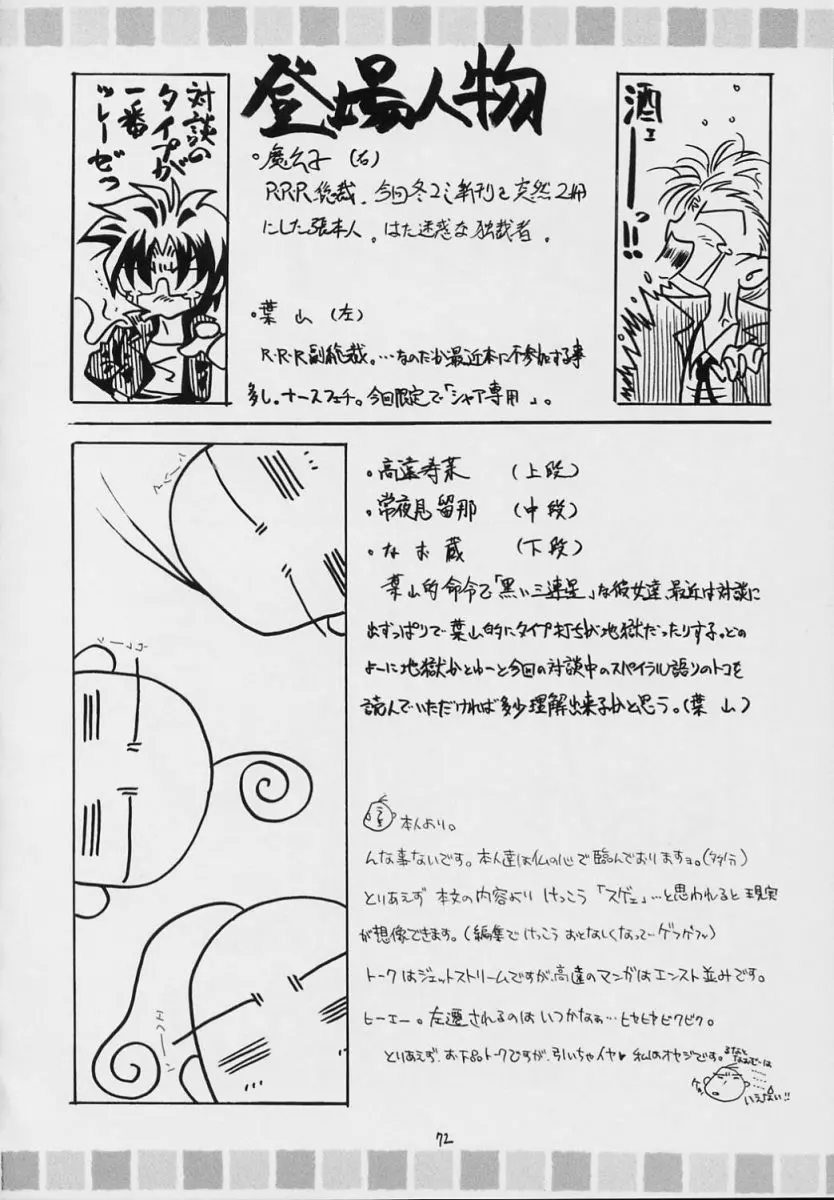 登場人物
酒ェーーっ!!
対談の
タイプが
一番
ツレーぜっ
・魔公子(右)
R.R.R総裁。今回冬コミ新刊を突然2冊
にした張本人。はた迷惑な独裁者。
・葉山(左)
R・R・R副総裁。…なのだが最近本に不参加する事
多し。ナースフェチ。今回限定で「シャア専用」。
・高遠寿菜(上段)
・常夜見留那(中段)
・なお蔵(下段)
葉山的命令で「黒い三連星」な彼女達、最近は対談に
出ずっぱりで葉山的にタイプ打ちが地獄だったりする。どの
ように地獄かとゆーと今回の対談中のスパイラル語りのトコを
読んでいただければ多少理解出来るかと思う。(葉山)
本人より。
んな事ないです。本人達は仏の心で臨んでおりますョ。(多分)
とりあえず 本文の内容より けっこう 「スゲェ」…と思われると 現実
が想像できます。(編集でけっこう おとなしくなってーゲフゲフッ)
トークはジェットストリームですが、高遠のマンガはエンスト並みです。
ヒーエー。左遷されるのは いつかなぁ…ヒヤヒヤビクビク。
とりあえず、お下品トークですが、引いちゃイヤ♥ 私はオヤジです。
いえない!!
72